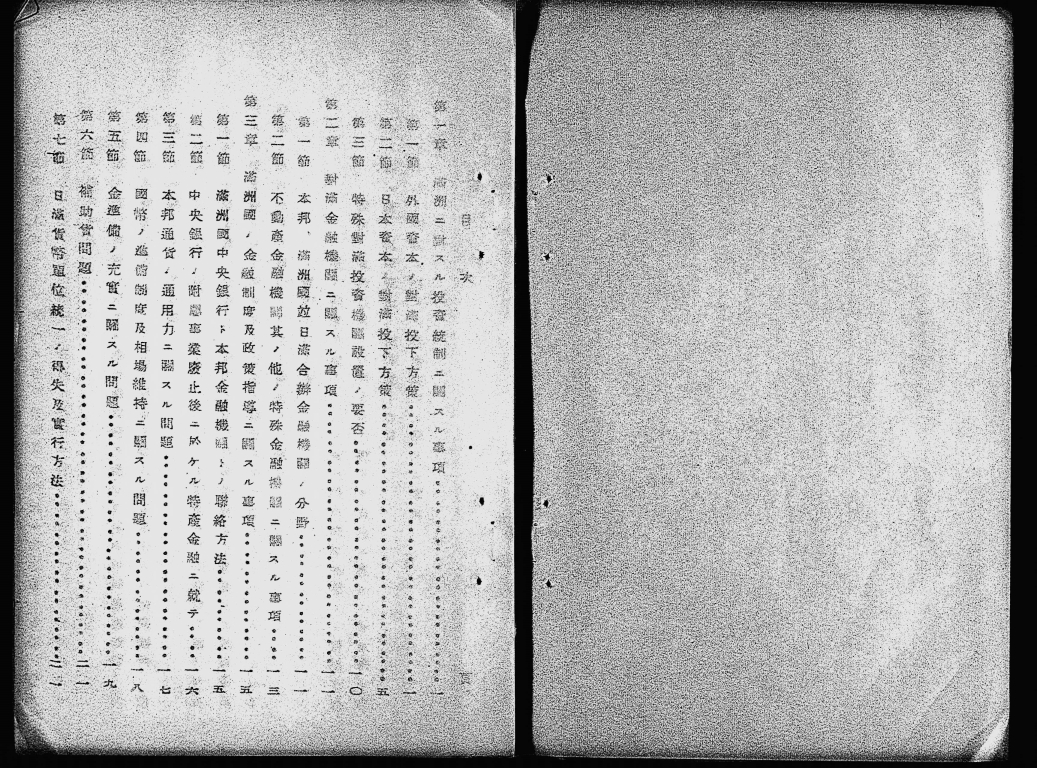 目次
頁
第一章 滿洲ニ對スル投資統制ニ關スル事項………一
第一節 外國資本ノ對滿投下方策………一
第二節 日本資本ノ對滿投下方策………五
第三節 特殊對滿投資機關設置ノ要否………一〇
第二章 對滿金融機關ニ關スル事項………一一
第一節 本邦、滿洲國竝日滿合辦金融機關ノ分野………一一
第二節 不動產金融機關其ノ他ノ特殊金融機關ニ關スル事項………一三
第三章 滿洲國ノ金融制度及政策指導ニ關スル事項………一五
第一節 滿洲國中央銀行ト本邦金融機關トノ聯絡方法………一五
第二節 中央銀行ノ附屬事業廢止後ニ於ケル特產金融ニ就テ………一六
第三節 本邦通貨ノ通用力ニ關スル問題………一七
第四節 國幣ノ準備制度及相場維持ニ關スル問題………一八
第五節 金準備ノ充實ニ關スル問題………一九
第六節 補助貨問題………二一
第七節 日滿貨幣單位統一ノ得失及實行方法………二一